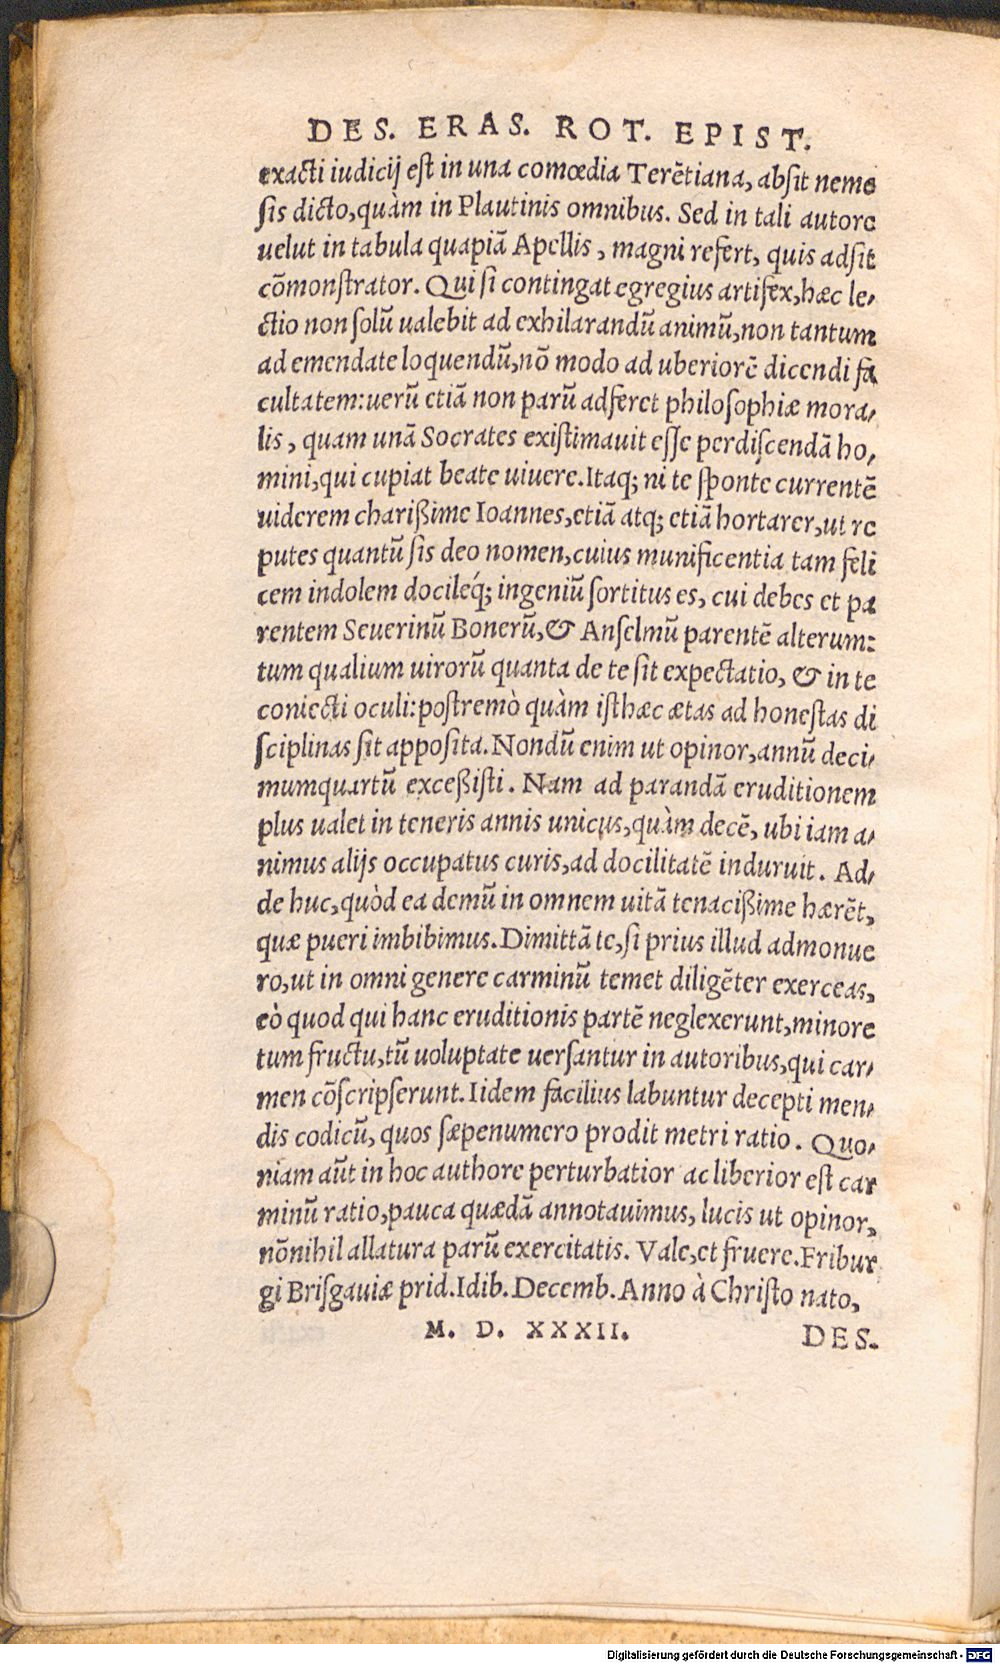 DES. ERAS. ROT. EPIST.
exacti iudicij est in una comœdia Terẽtiana, absit neme
sis dicto,quàm in Plautinis omnibus. Sed in tali autore
uelut in tabula quapiã Apellis , magni refert, quis adsit
cõmonstrator. Qui si contingat egregius artifex,hæc le-
ctio non solũ ualebit ad exhilarandũ animũ,non tantum
ad emendate loquendũ,nõ modo ad uberiorẽ dicendi fa
cultatem:uerũ etiã non parũ adferet philosophiæ mora-
lis , quam unã Socrates existimauit esse perdiscendã ho-
mini,qui cupiat beate uiuere.Itaq; ni te sponte currentẽ
uiderem charißime Ioannes,etiã atq; etiã hortarer,ut re
putes quantũ sis deo nomen,cuius munificentia tam feli
cem indolem docileq́; ingeniũ sortitus es, cui debes et pa
rentem Seuerinũ Bonerũ,& Anselmũ parentẽ alterum:
tum qualium uirorũ quanta de te sit expectatio, & in te
coniecti oculi:postremò quàm isthæc ætas ad honestas di
sciplinas sit apposita.Nondũ enim ut opinor,annũ deci-
mumquartũ exceßisti . Nam ad parandã eruditionem
plus ualet in teneris annis unicus,quàm decẽ, ubi iam a-
nimus alijs occupatus curis,ad docilitatẽ induruit . Ad-
de huc,quòd ea demũ in omnem uitã tenacißime hærẽt,
quæ pueri imbibimus.Dimittã te,si prius illud admonue
ro,ut in omni genere carminũ temet diligẽter exerceas,
eò quod qui hanc eruditionis partẽ neglexerunt,minore
tum fructu,tũ uoluptate uersantur in autoribus,qui car-
men cõscripserunt. Iidem facilius labuntur decepti men-
dis codicũ, quos sæpenumero prodit metri ratio . Quo-
niam aũt in hoc authore perturbatior ac liberior est car
minũ ratio,pauca quædã annotauimus, lucis ut opinor,
nõnihil allatura parũ exercitatis. Vale,et fruere.Fribur
gi Brisgauiæ prid.Idib.Decemb.Anno à Christo nato,
M. D. XXXII.
DES.
Digitalisierung gefördert durch die Deutsche Forschungsgemeinschaft - DFG